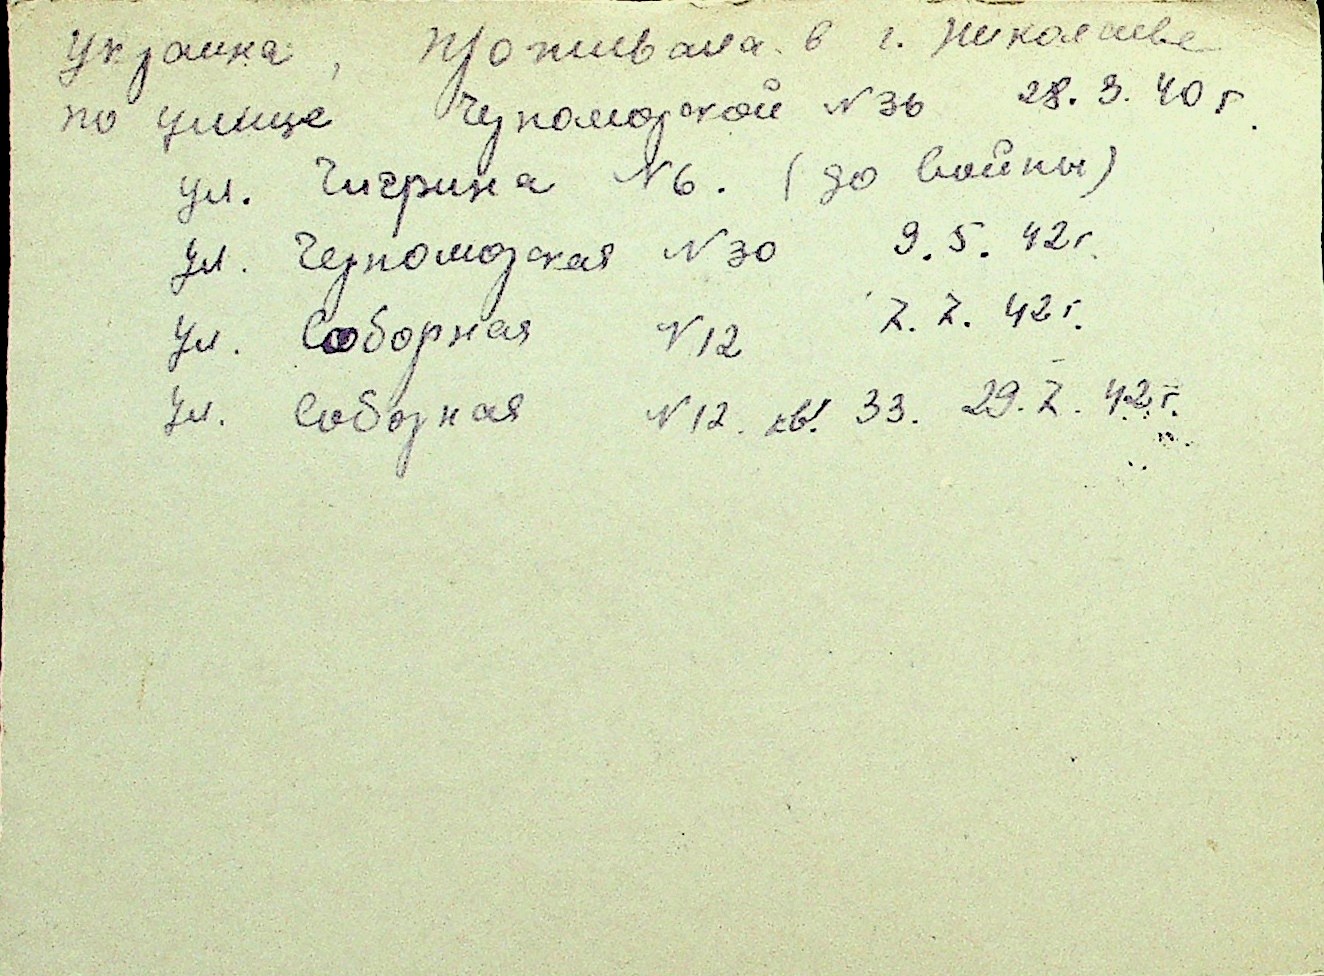 Украина, Проживала в г. Николаеве
по улице Черноморской N 36 28. 3. 40 г.
ул. Чигрина N 6. (до войны)
ул. Черноморская N 30 9. 5. 42 г.
ул. Соборная N 12 7. 7. 42 г.
ул. Соборная N 12. кв. 33. 29. 7. 42 г.